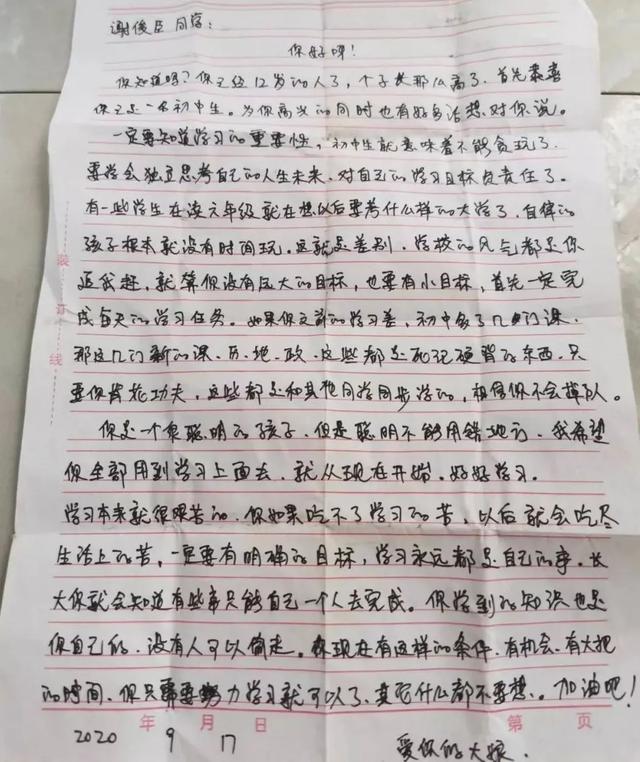 谢俊臣同学：
你好呀！
你知道吗？你已经12岁的人了，个子长那么高了。首先恭喜
你已是一名初中生。为你高兴的同时也有好多话想对你说。
一定要知道学习的重要性，初中生就意味着不能贪玩了。
要学会独立思考自己的人生未来，对自己的学习目标负责任了。
有一些学生在读六年级就在想以后要考什么样的大学了，自律的
孩子根本就没有时间玩。这就是差别，学校的风气都是你
追我赶，就算你没有巨大的目标，也要有小目标，首先一定完
成每天的学习任务。如果你之前的学习差，初中多了几门课，
那这几门新的课，历、地、政、这些都是死记硬背的东西，只
要你肯花功夫，这些都是和其他同学同步学的，相信你不会掉队。
你是一个很聪明的孩子，但是聪明不能用错地方，我希望
你全部用到学习上面去，就从现在开始，好好学习。
学习本来就很艰苦的，你如果吃不了学习的苦，以后就会吃尽
生活上的苦，一定要有明确的目标，学习永远都是自己的事，长
大你就会知道有些事只能自己一个人去完成。你学到的知识也是
你自己的，没有人可以偷走。你现在有这样的条件，有机会，有大把
的时间，你只需要努力学习就可以了，其它什么都不要想。加油吧！
2020年9月17日 第 页
爱你的大娘.
装订线